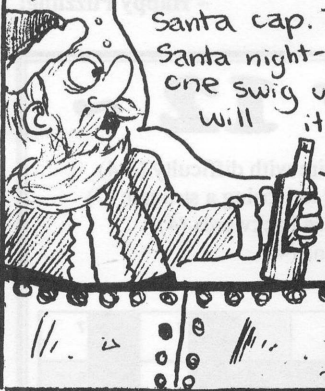 Santa cap.
Santa night-
one swig
will it